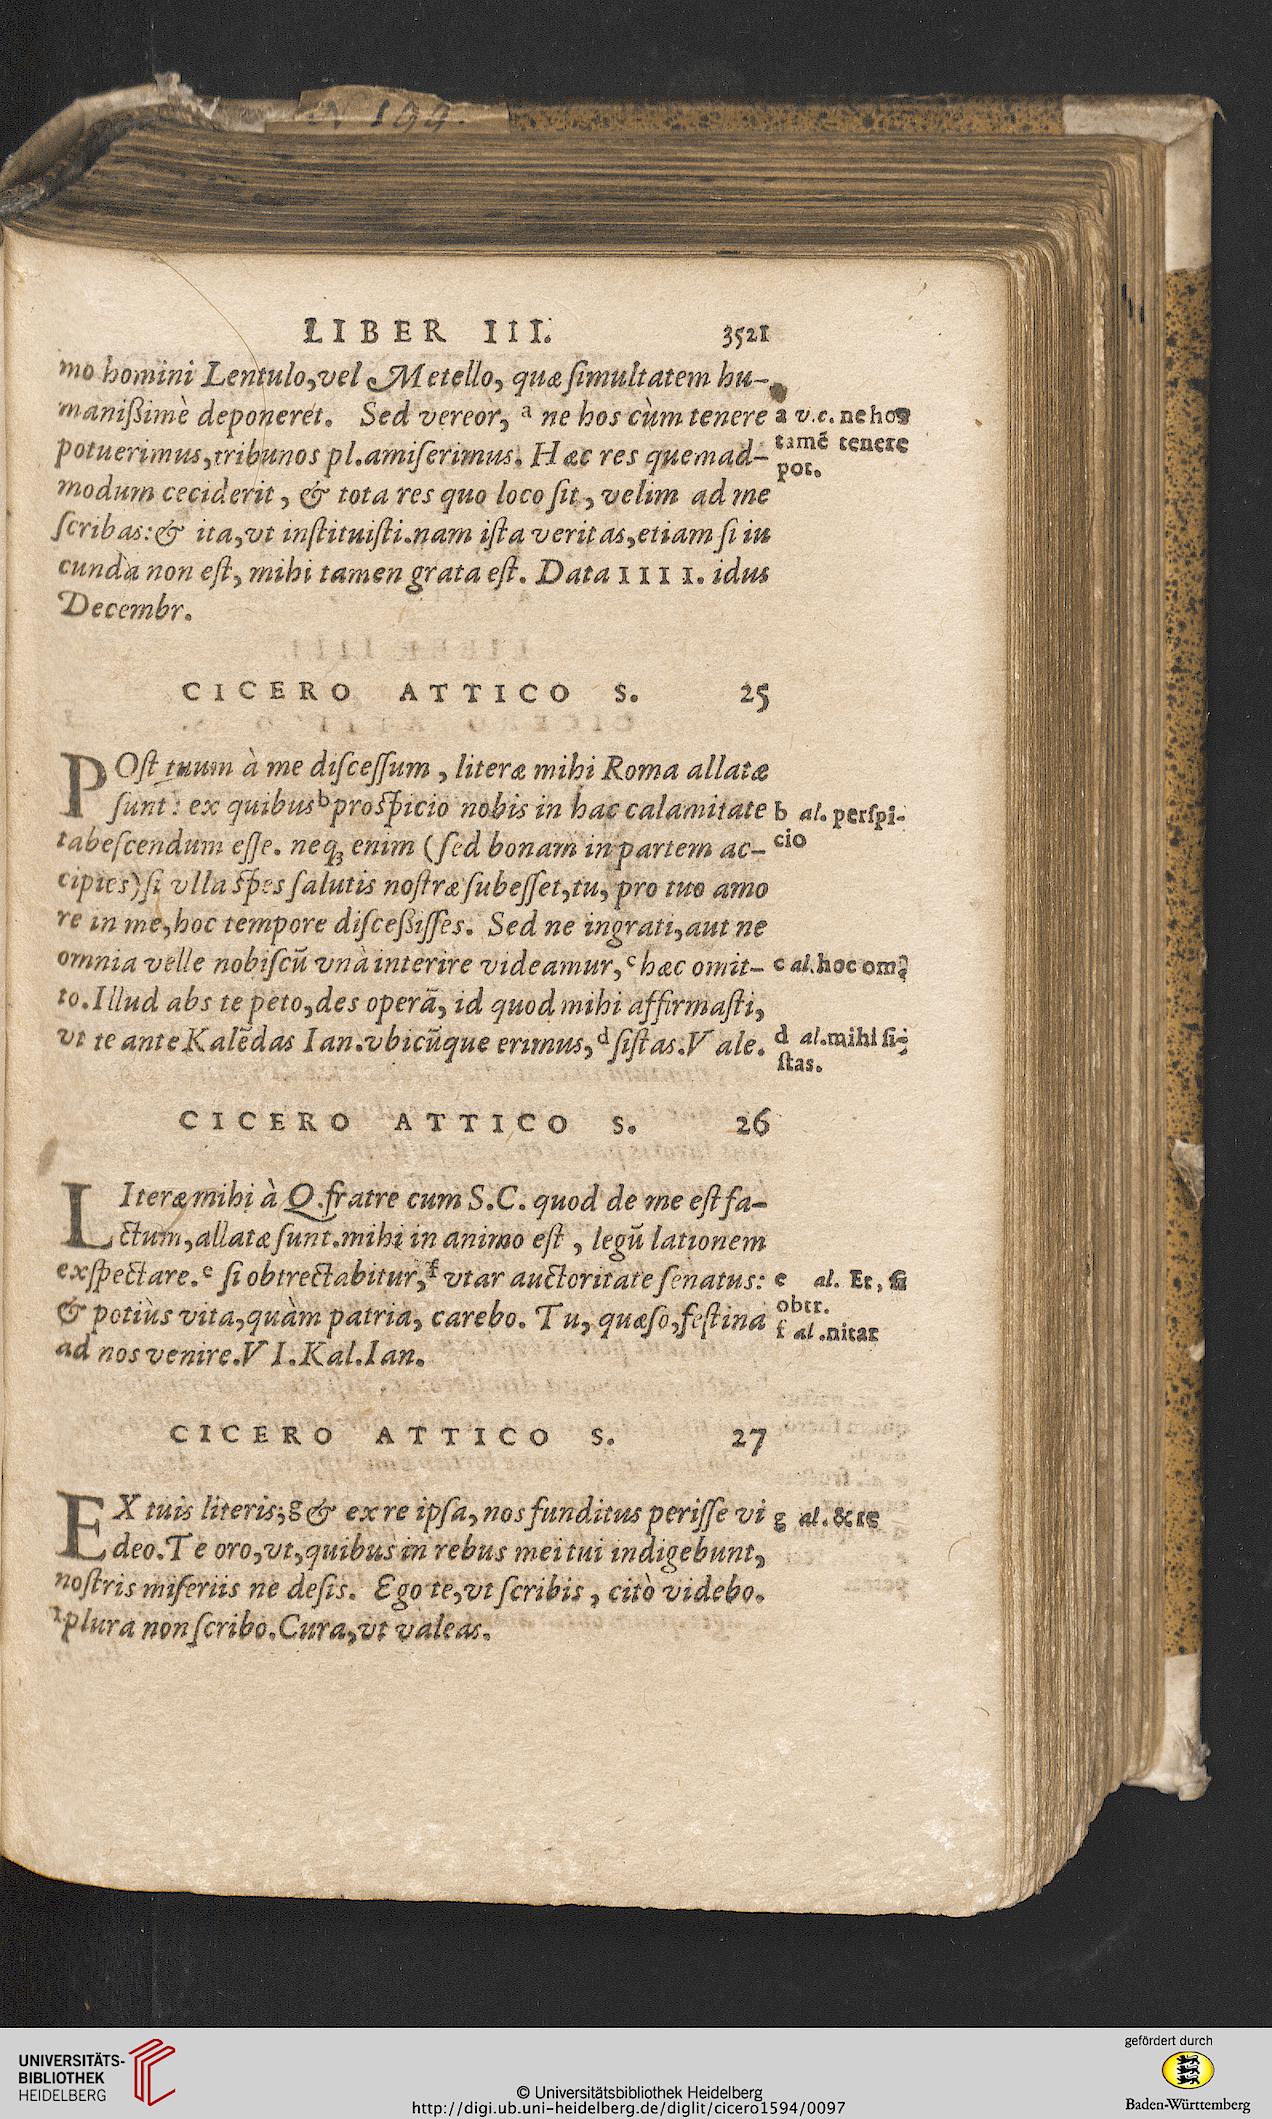 N 199.
LIBER III. 3521
mo homini Lentulo,vel Metello, quæ ſimultatem hu-
manißimè deponeret. Sed vereor, a ne hos cùm tenere
a v.c. ne hos
tamē tenere
pot.
potuerimus,tribunos pl.amiſerimus. Hæc res quemad-
modum ceciderit, & tota res quo loco ſit, velim ad me
ſcribas:& ita,vt inſtituiſti.nam iſta veritas,etiam ſi iu
cunda non eſt, mihi tamen grata eſt. Data IIII. idus
Decembr.
CICERO ATTICO S. 25
POſt tuum à me diſceſſum, literæ mihi Roma allatæ
ſunt: ex quibus b proſpicio nobis in hac calamitate
b al. perſpi-
cio
tabeſcendum eſſe. neq; enim (ſed bonam in partem ac-
cipies) ſi vlla ſpes ſalutis noſtræ ſubeſſet,tu, pro tuo amo
re in me,hoc tempore diſceßiſſes. Sed ne ingrati,aut ne
omnia velle nobiſcū vnà interire videamur, c hæc omit-
c al.hoc om̄
to.Illud abs te peto,des operā, id quod mihi affirmaſti,
vt te ante Kalēdas Ian.vbicūque erimus, d ſiſtas.Vale.
d al.mihi ſi-
ſtas.
CICERO ATTICO S. 26
LIteræ mihi à Q.fratre cum S.C. quod de me eſt fa-
ctum,allatæ ſunt.mihi in animo eſt, legū lationem
exſpectare. e ſi obtrectabitur, f vtar auctoritate ſenatus:
e al. Et, ſi
obtr.
f al.nitar
& potiùs vita,quàm patria, carebo. Tu, quæſo,feſtina
ad nos venire.VI.Kal.Ian.
CICERO ATTICO S. 27
EX tuis literis; g & ex re ipſa, nos funditus periſſe vi
g al.& re
deo.Te oro,vt,quibus in rebus mei tui indigebunt,
noſtris miſeriis ne deſis. Ego te,vt ſcribis, citò videbo.
plura non ſcribo.Cura,vt valeas.
UNIVERSITÄTS-
BIBLIOTHEK
HEIDELBERG
© Universitätsbibliothek Heidelberg
http://digi.ub.uni-heidelberg.de/diglit/cicero1594/0097
gefördert durch
Baden-Württemberg